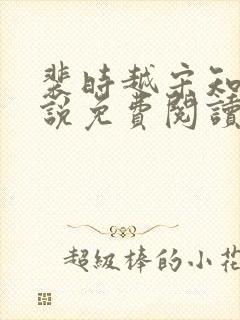 裴時越宋知
說免費閱讀
超級棒的小花